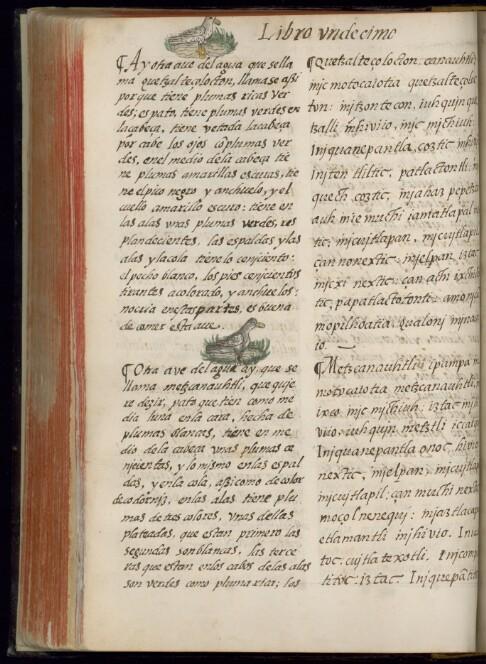 Libro vndecimo
¶ Ay otra aue del agua que se lla
ma quetzalteçolocton, llamase assi
porque tiene plumas ricas ver
des; es pato, tiene plumas verdes en
la cabeça, tiene vetada la cabeça
por cabe los ojos cõ plumas ver
des, en el medio de la cabeça tie
ne plumas amarillas escuras, tie
ne el pico negro y anchuelo, y el
cuello amarillo escuro: tiene en
las alas vnas plumas verdes, res
plandecientes, las espaldas y las
alas y la cola tiene lo cenjciento:
el pecho blanco, los pies cenjcientos
tirantes a colorado, y anchuelos:
no cria en estas partes, es buena
de comer esta aue.
¶ Otra aue del agua ay, que se
llama metzcanauhtli, que quje
re dezir, pato que tien como me
dia luna en la cara, hecha de
plumas blancas, tiene en me
dio de la cabeça vnas plumas ce
njcientas, y lo mismo en las espal
das, y en la cola, assi como de color
de codornjz, en las alas tiene plu
mas de tres colores, vnas dellas
plateadas, que estan primero las
segundas son blancas, las terce
ras que estan en los cabos de las alas
son verdes como pluma rica; los
¶ Quetzalteçolocton: canauhtli
njc motocaiotia quetzalteçoloc
ton: injtzontecon, iuhqujn que
tzalli, injhiviio, injc mjchiuh
Injquanepantla, coztic
injten tliltic, patlachtontli:
quech coztic, injahaz pepetz
injcujtlapan, injcujtlapil
çan nonextic: injelpan, iztac
injcxi nextic: çan achi
tic, papatlactotonti: amo nj
mopilhoatia, qualonj
io.
¶ Metzcanauhtli: ipampa
motocaiotia metzcanauhtli,
ixco injc mjchiuh: iztac
viio, iuhqujn metztli
Injquanepantla onoc,
nextic, injelpan, injcujtlapan
injcujtlapil: çan muchi
moçolnenequj: injaztlacapal
etlamantli injhivio.
toc: cujtlatexotli. Injcom
titoc: iztac. Injquepan